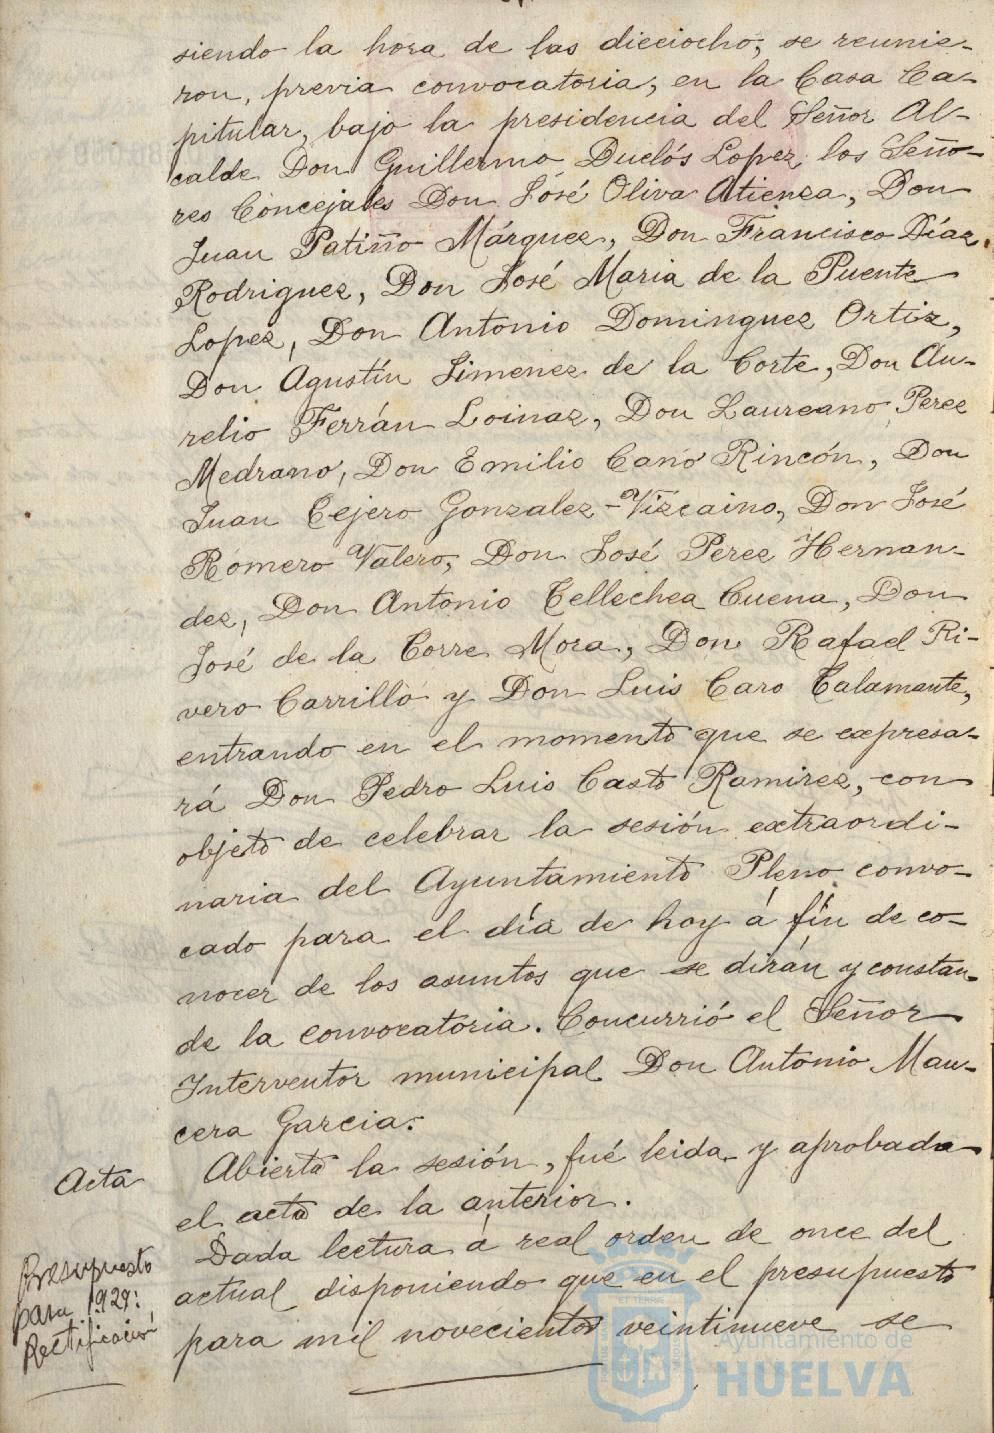 siendo la hora de las dieciocho, se reunie-
ron, previa convocatoria, en la Casa Ca-
pitular, bajo la presidencia del Señor Al-
calde Don Guillermo Duclós Lopez, los Seño-
res Concejales Don José Oliva Atienza, Don
Juan Patiño Márquez, Don Francisco Díaz
Rodriguez, Don José Maria de la Puente
Lopez, Don Antonio Dominguez Ortiz,
Don Agustín Jimenez de la Corte, Don Au-
relio Ferrán Loinaz, Don Laureano Perez
Medrano, Don Emilio Cano Rincón, Don
Juan Tejero Gonzalez-Vizcaino, Don José
Romero Valero, Don José Perez Hernan-
dez, Don Antonio Tellechea Cuena, Don
José de la Torre Mora, Don Rafael Ri-
vero Carrillo y Don Luis Caro Talamante,
entrando en el momento que se expresa-
rá Don Pedro Luis Casto Ramirez, con
objeto de celebrar la sesión extraordi-
naria del Ayuntamiento Pleno convo-
cado para el día de hoy á fin de co-
nocer de los asuntos que se dirán y constan
de la convocatoria. Concurrió el Señor
Interventor municipal Don Antonio Man-
cera Garcia.
Acta
Abierta la sesión, fué leida y aprobada
el acta de la anterior.
Presupuesto
para 1929:
Rectificación
Dada lectura á real orden de once del
actual disponiendo que en el presupuesto
para mil novecientos veintinueve se
Ayuntamiento de
HUELVA